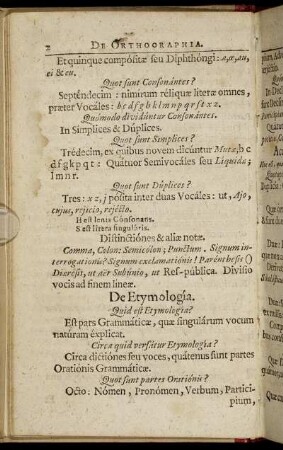 2 DE ORTHOGRAPHIA.
Et quinque compósitæ seu Diphthóngi: æ, œ, au,
ei & eu.
Quot sunt Consonántes?
Septéndecim: nimirum réliquæ literæ omnes,
præter Vocáles: b c d f g h k l m n p q r s t x z.
Quómodo dividúntur Consonántes.
In Simplices & Dúplices.
Quot sunt Símplices?
Trédecim, ex quibus novem dicúntur Mutæ, b c
d f g k p q t: Quátuor Semivocáles seu Liquidæ;
l m n r.
Quot sunt Dúplices?
Tres: x z, j pósita inter duas Vocáles: ut, Ajo,
cujus, rejicio, rejécto.
H est lenis Cónsonans.
S est litera singuláris.
Distinctiónes & aliæ notæ.
Comma, Colon: Semicolon; Punctum. Signum in-
terrogationis? Signum exclamatiónis! Parénthesis ()
Diæresis, ut aër Subúnio, ut Res-pública. Divisio
vocis ad finem lineæ.
De Etymologia.
Quid est Etymologia?
Est pars Grammáticæ, quæ singulárum vocum
natúram éxplicat.
Circa quid versátur Etymologia?
Circa dictiónes seu voces, quátenus sunt partes
Oratiónis Grammáticæ.
Quot sunt partes Oratiónis?
Octo: Nómen, Pronómen, Verbum, Partici-
pium,